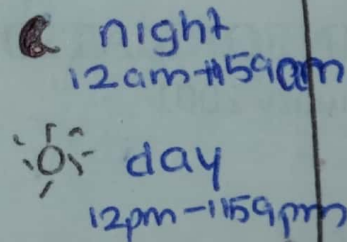 night
12am-1159am
day
12pm-1159pm